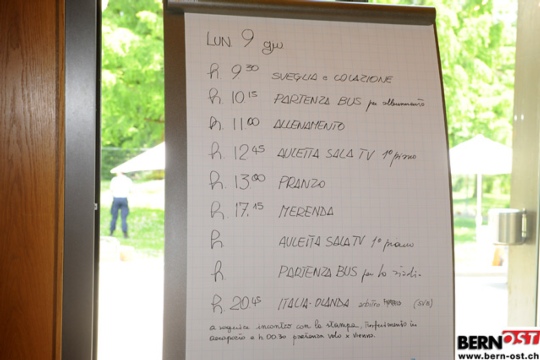 LUN 9 giu
h 9³⁰ SVEGLIA e COLAZIONE
h. 10¹⁵ PARTENZA BUS per allenamento
h. 11.⁰⁰ ALLENAMENTO
h. 12⁴⁵ AULETTA SALA TV 1º piano
h. 13⁰⁰ PRANZO
h. 17.¹⁵ MERENDA
h AULETTA SALA TV 1º piano
h PARTENZA BUS per lo stadio
h. 20⁴⁵ ITALIA-OLANDA arbitro
a seguire incontro con la stampa, trasferimento in
aeroporto e h 00.30 partenza volo x Vienna.
BERNOST
www.bern-ost.ch